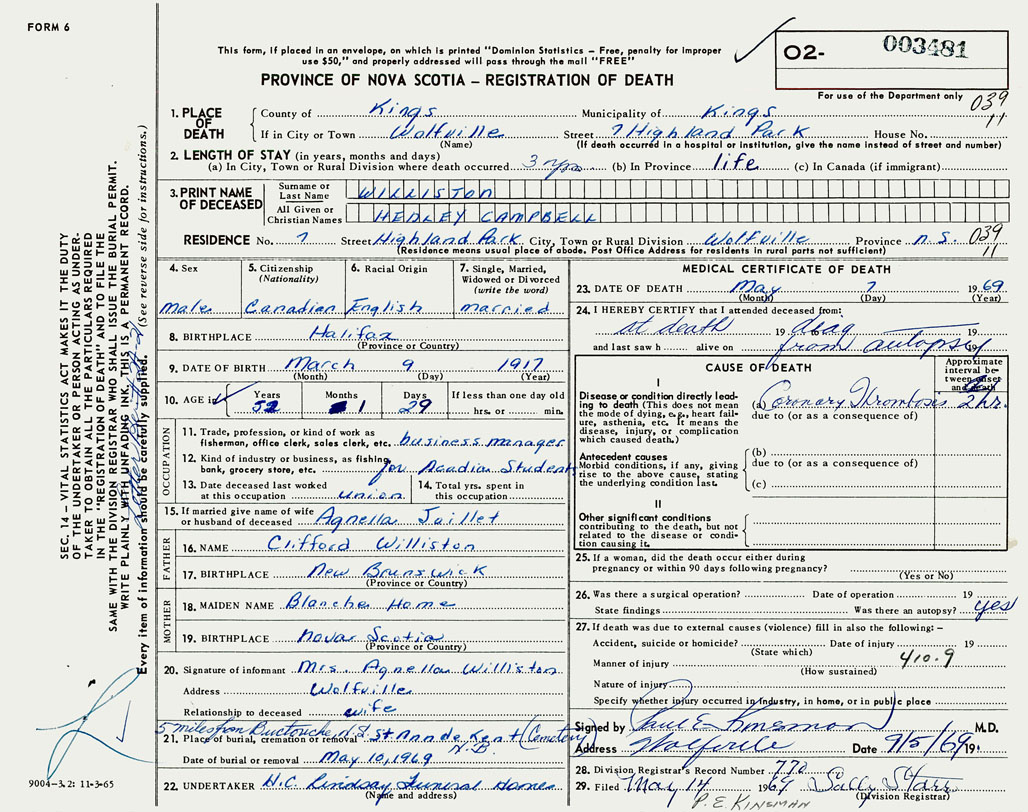 FORM 6
This form, if placed in an envelope, on which is printed "Dominion Statistics — Free, penalty for improper
use $50," and properly addressed will pass through the mail "FREE"
PROVINCE OF NOVA SCOTIA — REGISTRATION OF DEATH
O2- 003481
For use of the Department only 039
11
1. PLACE OF DEATH
County of Kings Municipality of Kings
If in City or Town Wolfville Street 7 Highland Park House No.
(Name) (If death occurred in a hospital or institution, give the name instead of street and number)
2. LENGTH OF STAY (in years, months and days)
(a) In City, Town or Rural Division where death occurred 3 yrs (b) In Province life (c) In Canada (if immigrant)
3. PRINT NAME OF DECEASED
Surname or Last Name WILLISTON
All Given or Christian Names HEDLEY CAMPBELL
RESIDENCE No. 7 Street Highland Park City, Town or Rural Division Wolfville Province n.S. 039
11
(Residence means usual place of abode. Post Office Address for residents in rural parts not sufficient)
4. Sex
male
5. Citizenship
(Nationality)
Canadian
6. Racial Origin
English
7. Single, Married,
Widowed or Divorced
(write the word)
married
8. BIRTHPLACE Halifax
(Province or Country)
9. DATE OF BIRTH March 9 1917
(Month) (Day) (Year)
10. AGE
Years Months Days If less than one day old
52 1 29 hrs. or min.
OCCUPATION
11. Trade, profession, or kind of work as
fisherman, office clerk, sales clerk, etc. business manager
12. Kind of industry or business, as fishing,
bank, grocery store, etc. for Acadia Students
13. Date deceased last worked
at this occupation union
14. Total yrs. spent in
this occupation
15. If married give name of wife
or husband of deceased Agnella Jaillet
FATHER
16. NAME Clifford Williston
17. BIRTHPLACE New Brunswick
(Province or Country)
MOTHER
18. MAIDEN NAME Blanche Home
19. BIRTHPLACE Nova Scotia
(Province or Country)
20. Signature of informant Mrs. Agnella Williston
Address Wolfville
Relationship to deceased wife
5 miles from Buctouche, N.B.
21. Place of burial, cremation or removal St Anne de Kent (Cemetery)
N.B.
Date of burial or removal May 10, 1969
22. UNDERTAKER H.C. Lindsay Funeral Home
(Name and address)
MEDICAL CERTIFICATE OF DEATH
23. DATE OF DEATH May 7 1969
(Month) (Day) (Year)
24. I HEREBY CERTIFY that I attended deceased from:
at death 19 diag 19
and last saw h alive on from autopsy 19
CAUSE OF DEATH
Approximate
interval be-
tween onset
and death
I
Disease or condition directly lead-
ing to death (This does not mean
the mode of dying, e.g., heart fail-
ure, asthenia, etc. It means the
disease, injury, or complication
which caused death.)
(a) Coronary Thrombosis 2 hr.
due to (or as a consequence of)
Antecedent causes
Morbid conditions, if any, giving
rise to the above cause, stating
the underlying condition last.
(b)
due to (or as a consequence of)
(c)
II
Other significant conditions
contributing to the death, but not
related to the disease or condi-
tion causing it.
25. If a woman, did the death occur either during
pregnancy or within 90 days following pregnancy?
(Yes or No)
26. Was there a surgical operation? Date of operation 19
State findings Was there an autopsy? yes
27. If death was due to external causes (violence) fill in also the following: —
Accident, suicide or homicide? Date of injury 19
(State which)
Manner of injury 410.9
(How sustained)
Nature of injury
Specify whether injury occurred in industry, in home, or in public place
Signed by Paul E Kinsman M.D.
Address Wolfville Date 9/5/69 19
28. Division Registrar's Record Number 770
29. Filed May 14 1969 Sally Starr
(Division Registrar)
P. E. KINSMAN
SEC. 14 — VITAL STATISTICS ACT MAKES IT THE DUTY
OF THE UNDERTAKER OR PERSON ACTING AS UNDER-
TAKER TO OBTAIN ALL THE PARTICULARS REQUIRED
IN THE "REGISTRATION OF DEATH" AND TO FILE THE
SAME WITH THE DIVISION REGISTRAR WHO SHALL ISSUE THE BURIAL PERMIT.
WRITE PLAINLY, WITH UNFADING INK, THIS IS A PERMANENT RECORD.
Every item of information should be carefully supplied. (See reverse side for instructions.)
9004-3.2: 11-3-65